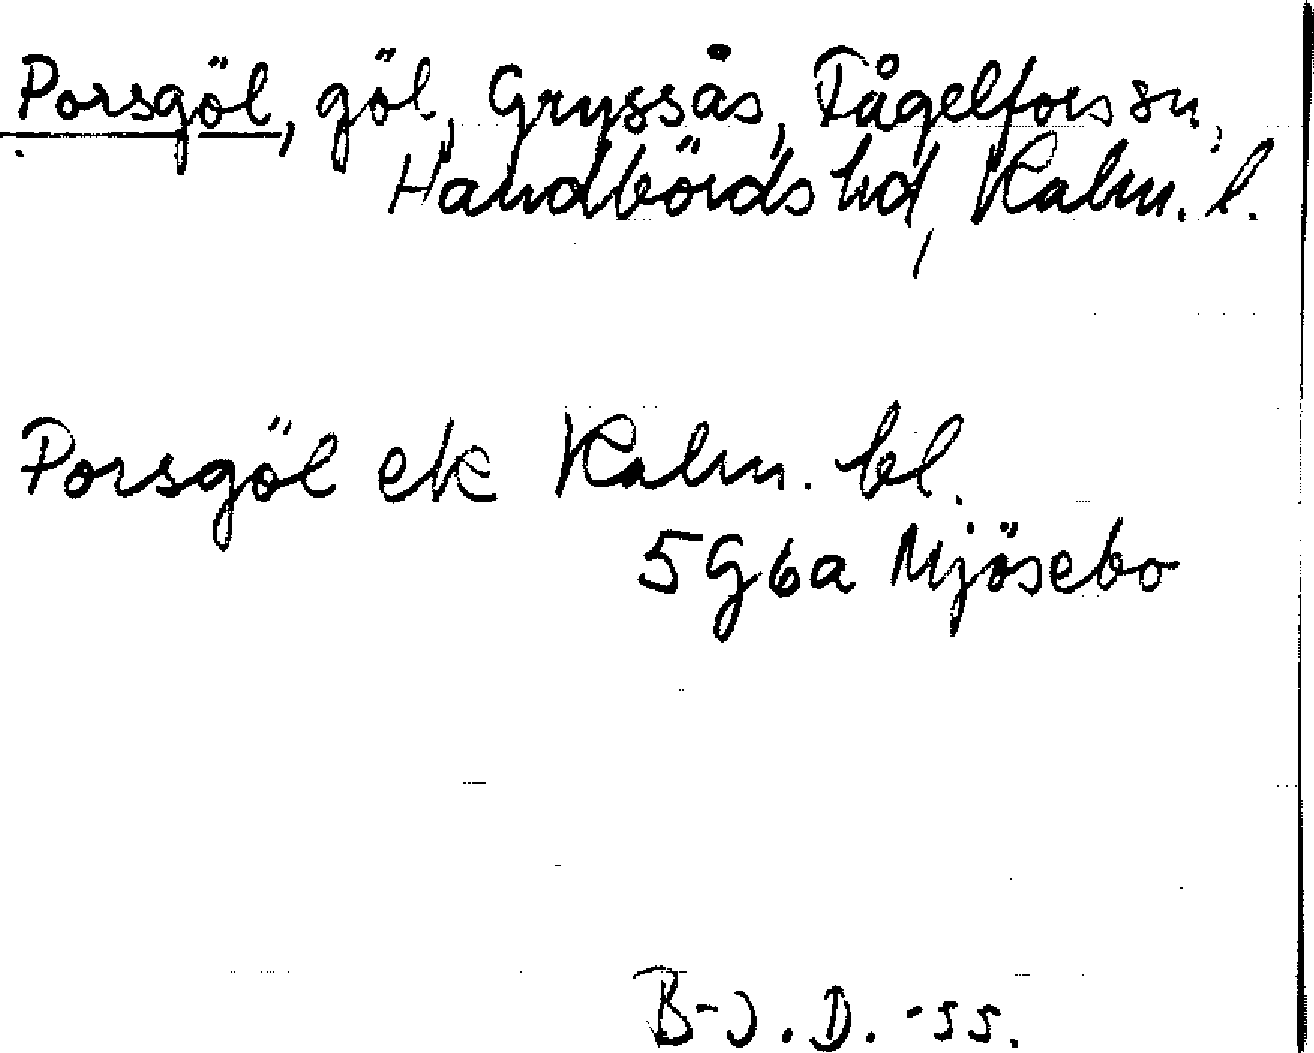 Porsgöl, göl, Gryssås, Fågelfors sn,
Handbörds hd, Kalm. l.
Porsgöl ek Kalm. bl.
5G6a Mjösebo
B-J.D.-55.